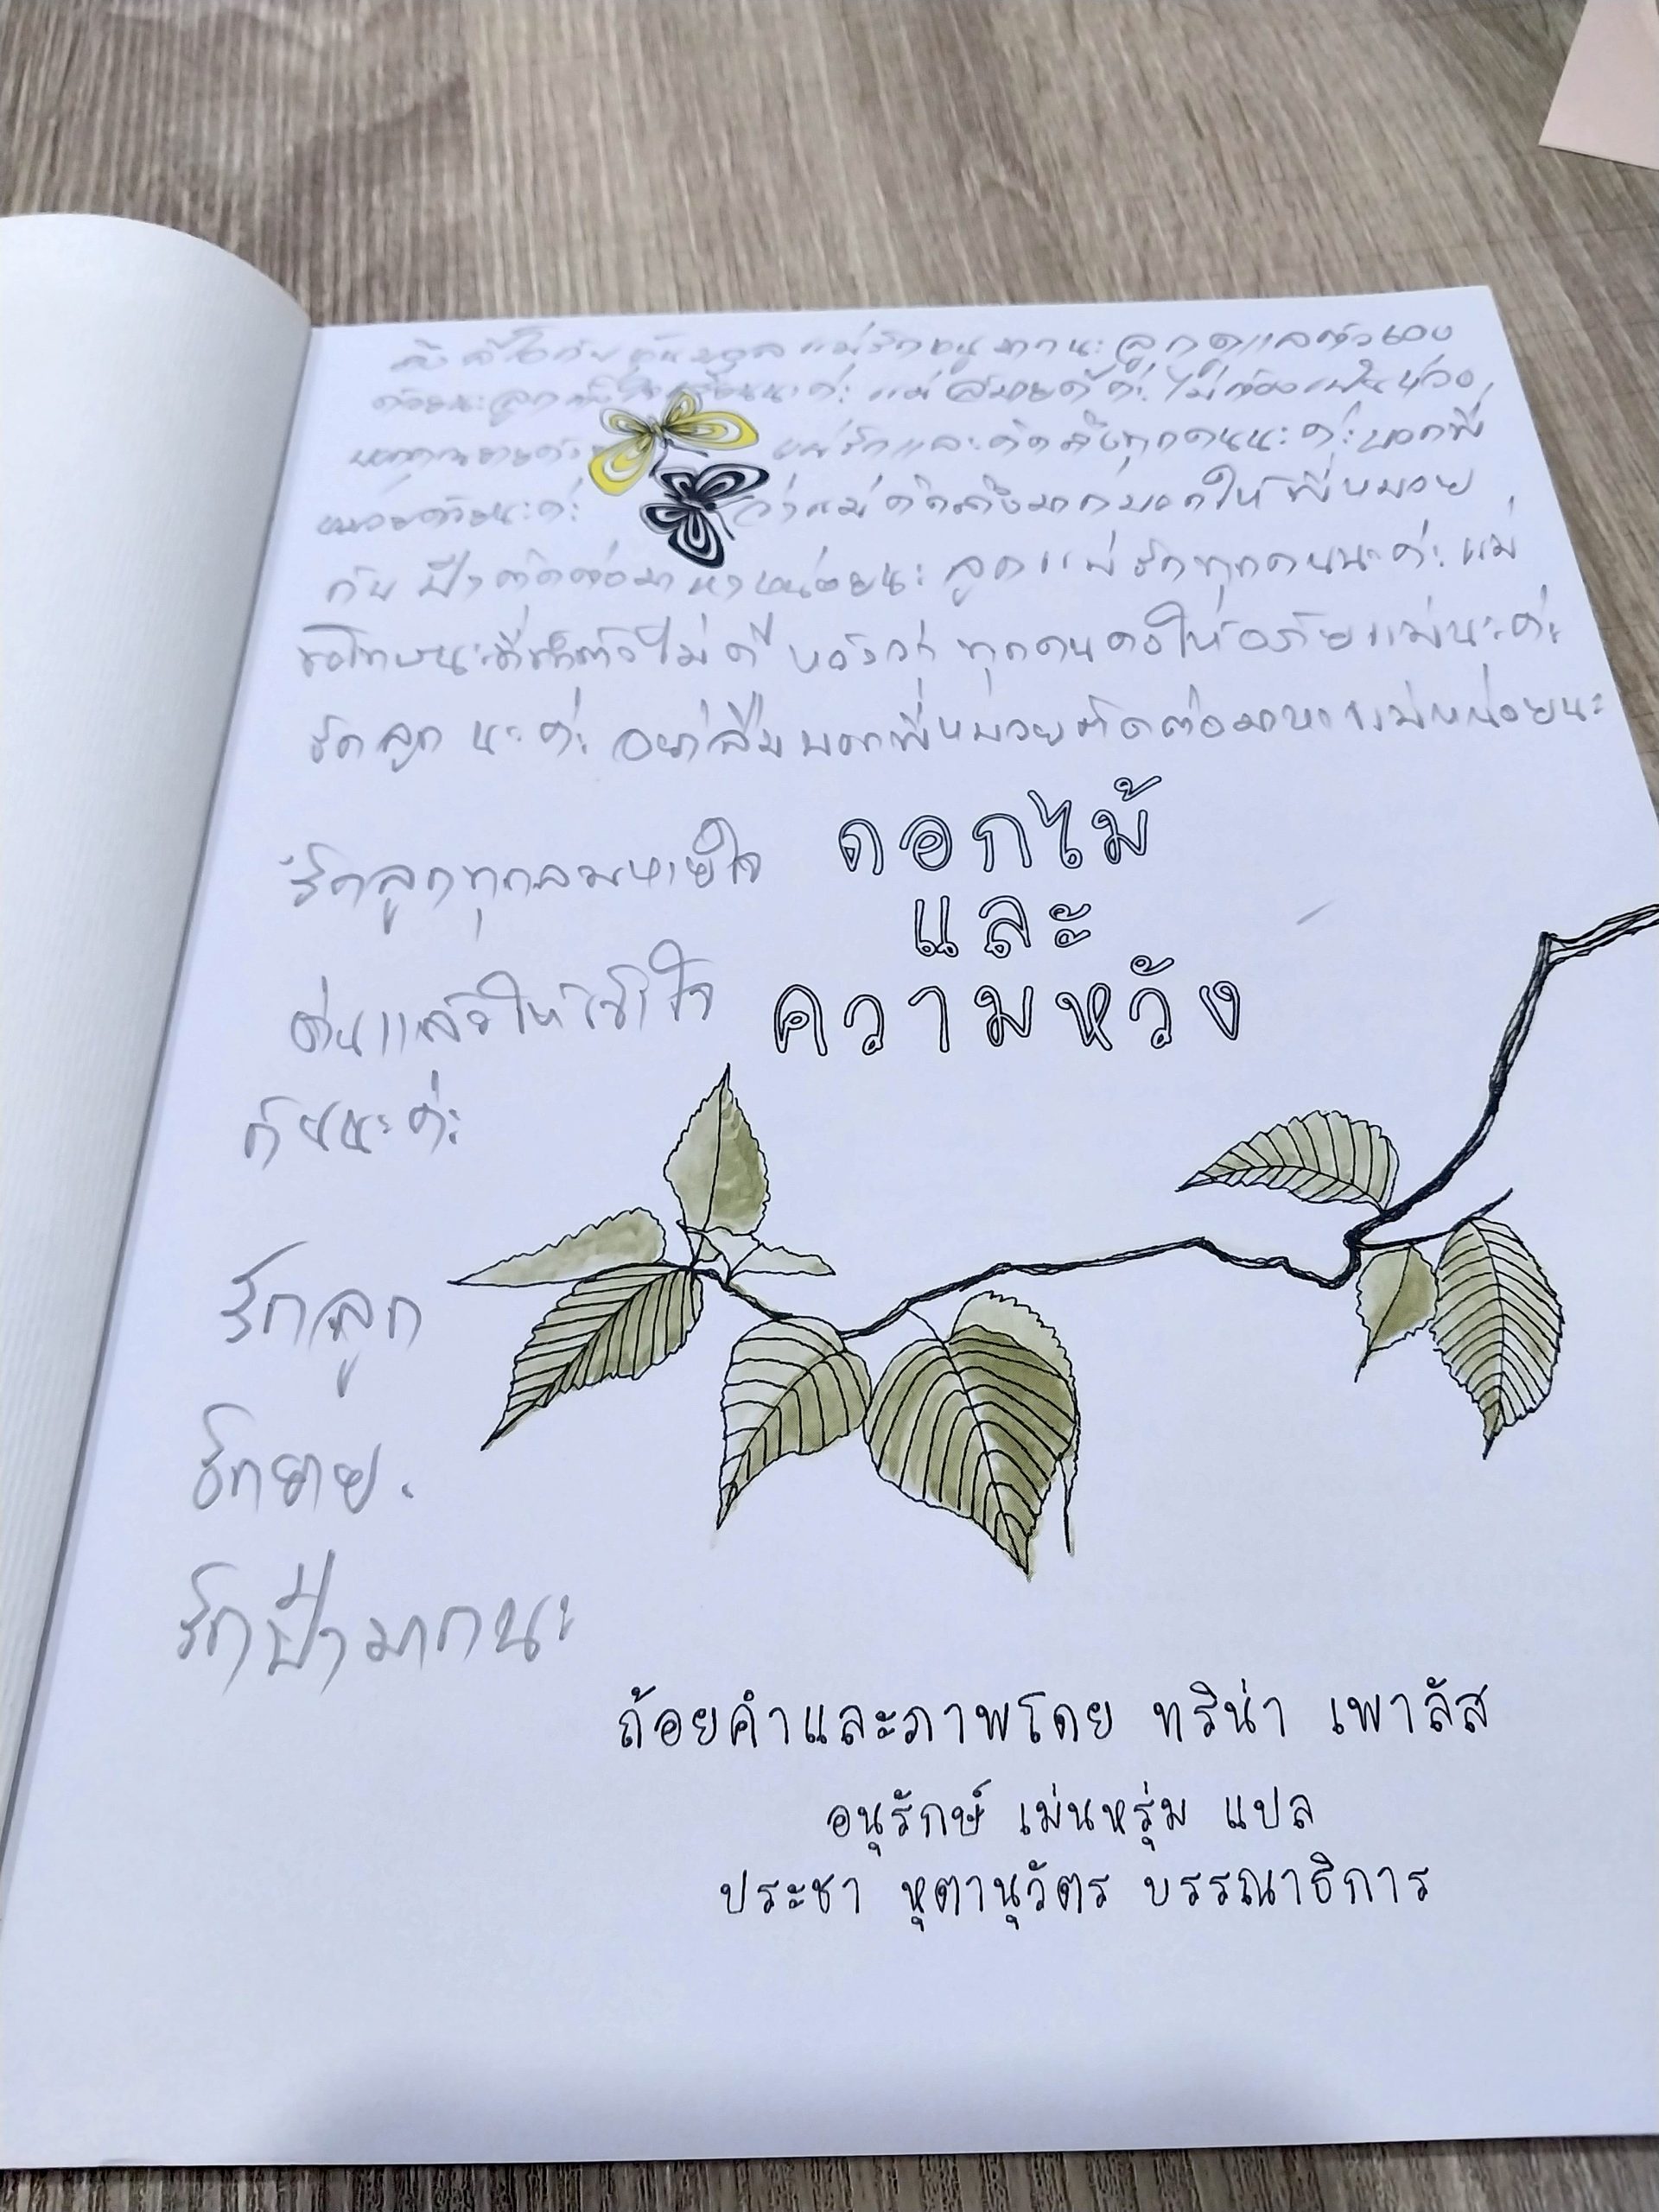 แม่รักหนูมากนะ ลูกดูแลตัวเอง
ด้วยนะลูก นะค่ะ แม่สบายดีค่ะ ไม่ต้องเป็นห่วง
แม่รักและคิดถึงทุกคนนะค่ะ บอกพี่
หมวยด้วยนะค่ะ ว่าแม่คิดถึงมากบอกให้พี่หมวย
กับป๊าติดต่อมาหาหน่อยนะ ลูกแม่รักทุกคนนะค่ะ แม่
ขอโทษนะที่ทำตัวไม่ดี หวังว่า ทุกคนคงให้อภัยแม่นะค่ะ
รักลูก นะค่ะ อย่าลืมบอกพี่หมวยติดต่อมาหาแม่หน่อยนะ
รักลูกทุกลมหายใจ
ดอกไม้
และ
ความหวัง
ให้
กันนะค่ะ
รักลูก
รักยาย.
รักป๊ามากนะ
ถ้อยคำและภาพโดย ทริน่า เพาลัส
อนุรักษ์ เม่นหรุ่ม แปล
ประชา หุตานุวัตร บรรณาธิการ